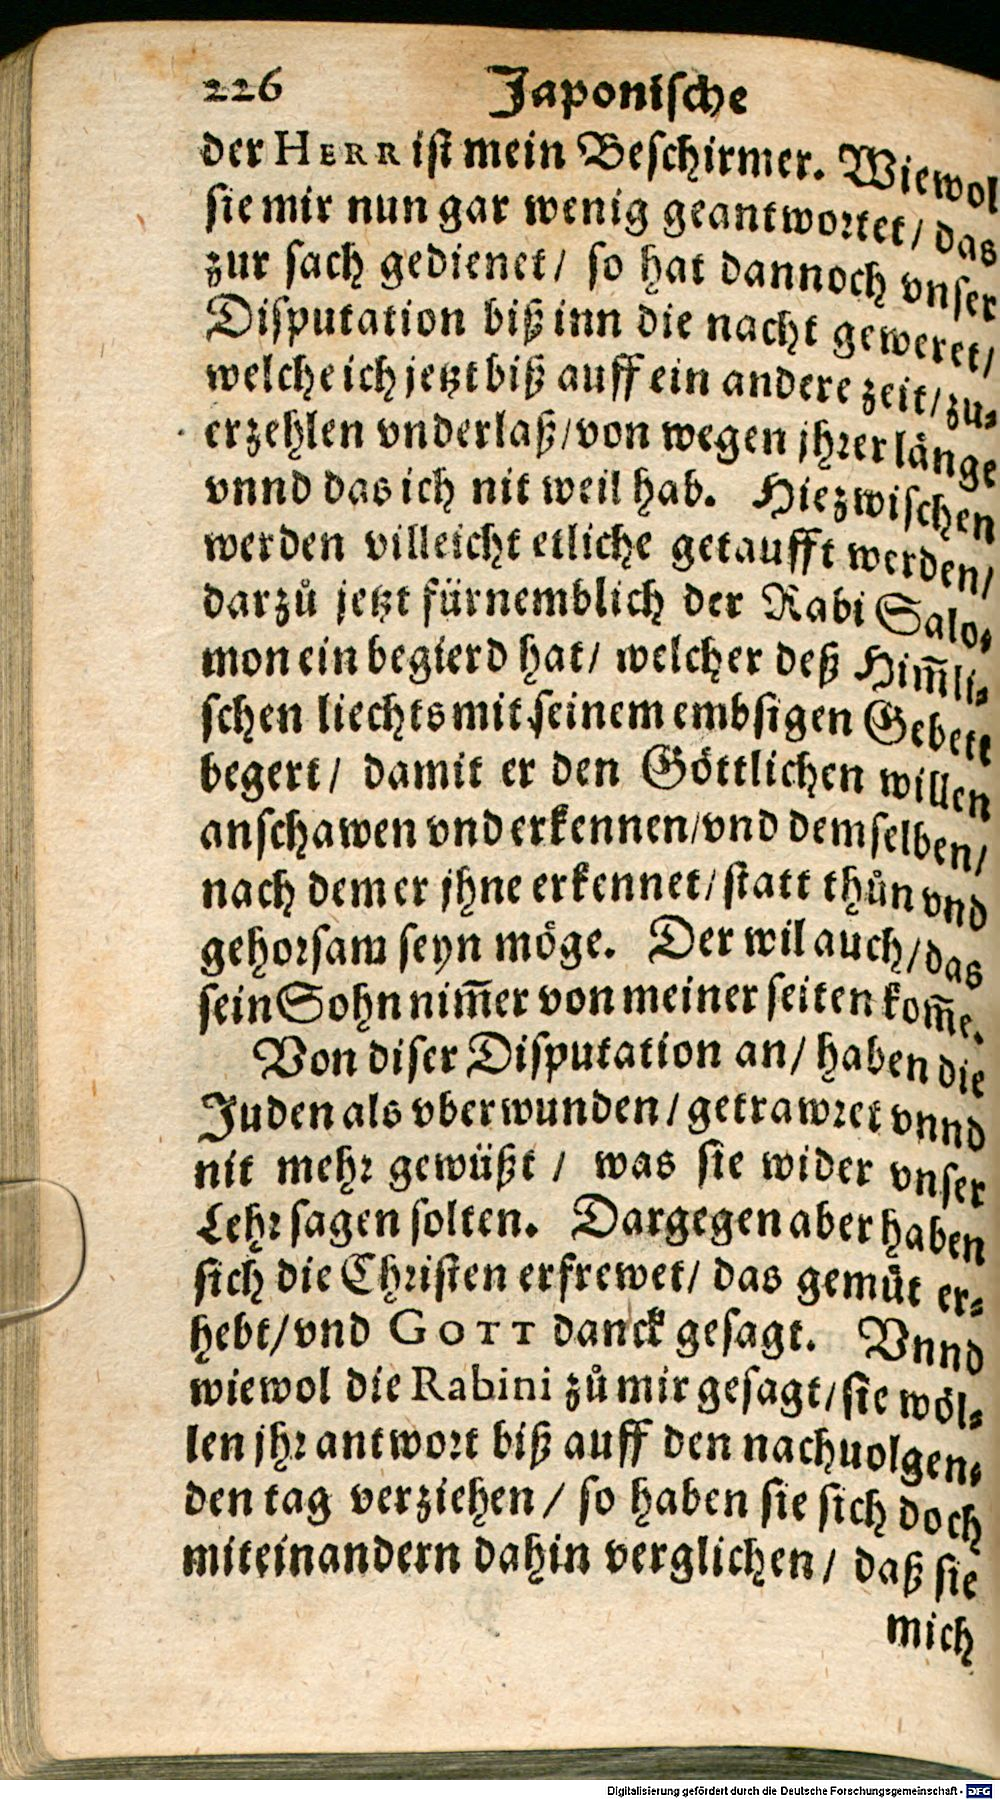 226 Japonische
der HERR ist mein Beschirmer. Wiewol
sie mir nun gar wenig geantwortet/ das
zur sach gedienet/ so hat dannoch vnser
Disputation biß inn die nacht geweret/
welche ich jetzt biß auff ein andere zeit/zu-
erzehlen vnderlaß/von wegen jhrer länge
vnnd das ich nit weil hab. Hiezwischen
werden villeicht etliche getaufft werden/
darzů jetzt fürnemblich der Rabi Salo-
mon ein begierd hat/ welcher deß Him̃li-
schen liechts mit seinem embsigen Gebett
begert/ damit er den Göttlichen willen
anschawen vnd erkennen/vnd demselben/
nach dem er jhne erkennet/statt thůn vnd
gehorsam seyn möge. Der wil auch/das
sein Sohn nim̃er von meiner seiten kom̃e.
Von diser Disputation an/ haben die
Juden als vberwunden/getrawret vnnd
nit mehr gewüßt / was sie wider vnser
Lehr sagen solten. Dargegen aber haben
sich die Christen erfrewet/ das gemüt er-
hebt/vnd GOTT danck gesagt. Vnnd
wiewol die Rabini zů mir gesagt/sie wöl-
len jhr antwort biß auff den nachuolgen-
den tag verziehen/ so haben sie sich doch
miteinandern dahin verglichen/ daß sie
mich
Digitalisierung gefördert durch die Deutsche Forschungsgemeinschaft - DFG